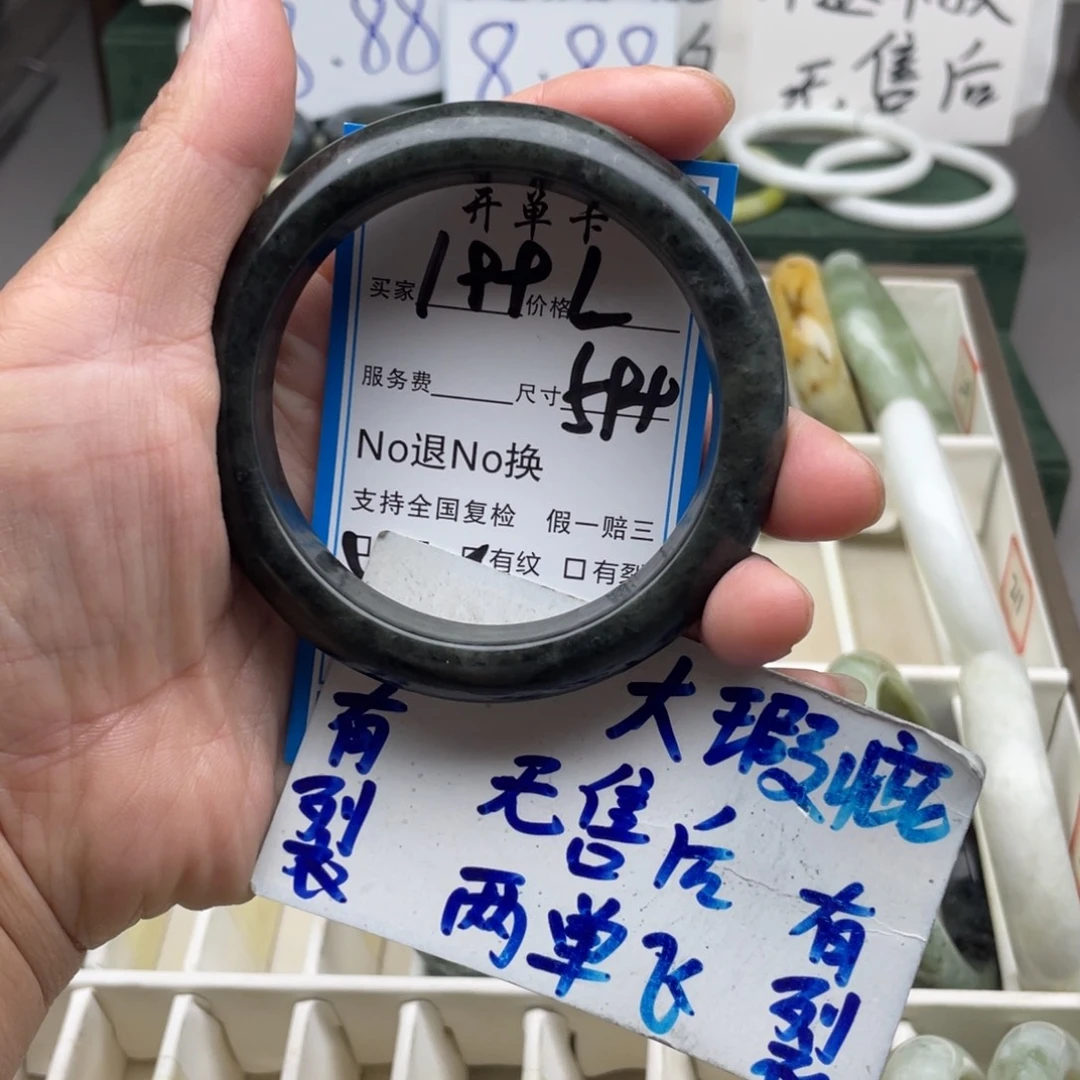 8.88
8.88
无售后
开单卡
买家 199 价格 L
服务费 尺寸 594
No退No换
支持全国复检 假一赔三
有纹 有裂
大瑕疵
有裂
无售后
两单飞
有裂